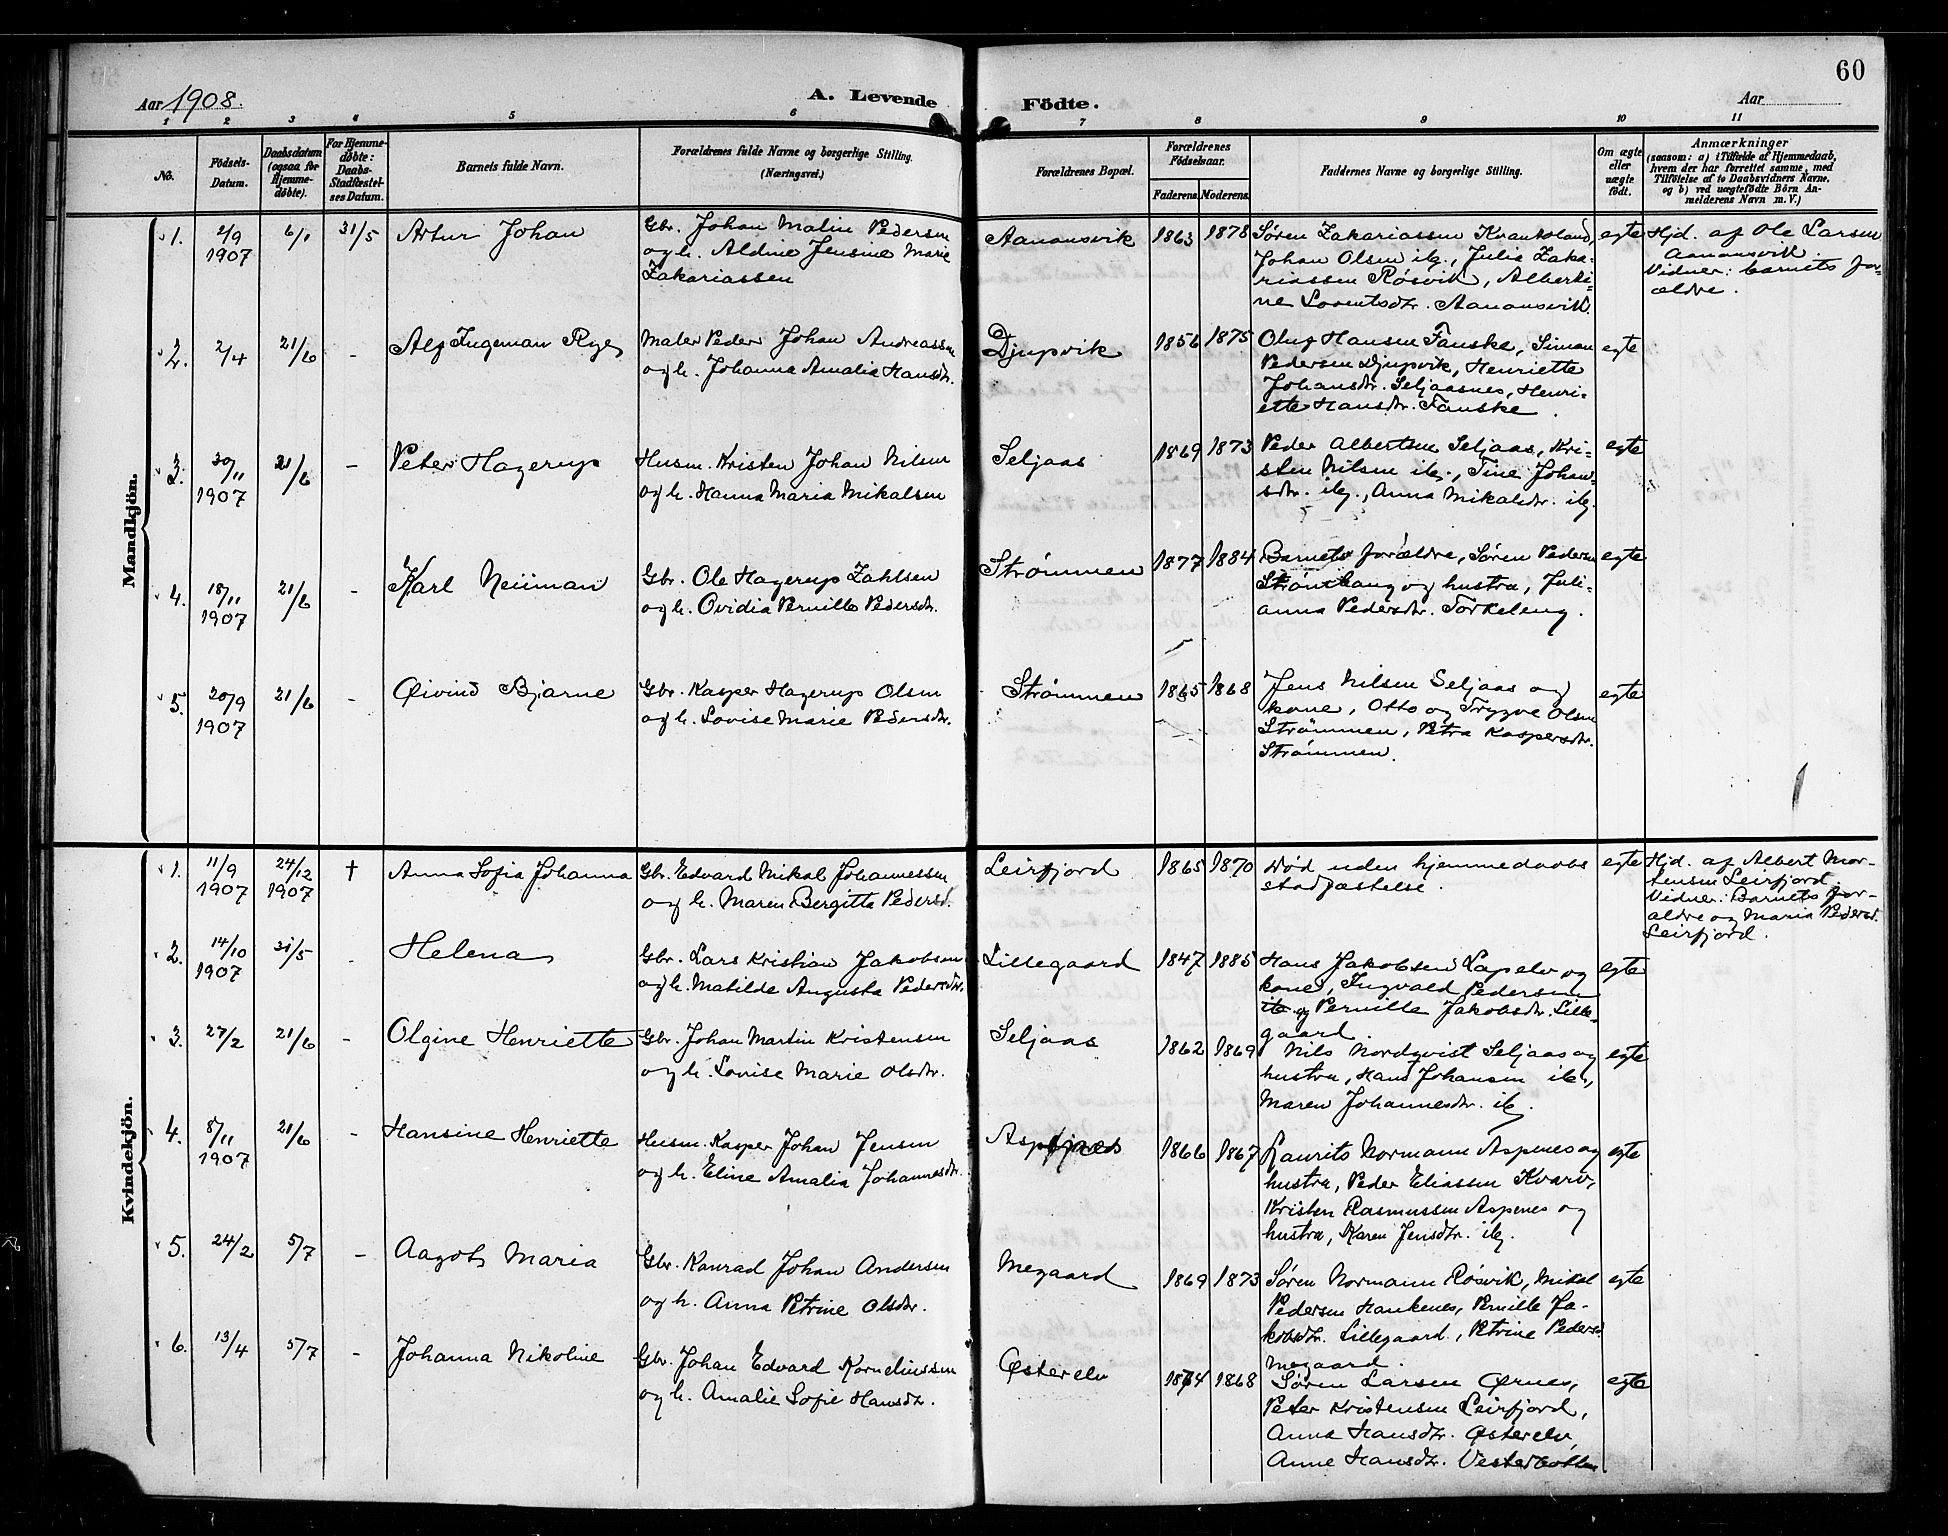 60
Aar 1908.
A. Levende Födte.
Aar
1 2 3 4 5 6 7 8 9 10 11
No.
Födsels-Datum.
Daabsdatum (ogsaa for Hjemme-döbte).
For Hjemme-döbte: Daabs-Stadfæstel-ses Datum.
Barnets fulde Navn.
Forældrenes fulde Navne og borgerlige Stilling. (Næringsvei.)
Forældrenes Bopæl.
Forældrenes Födselsaar.
Faderens. Moderens.
Faddernes Navne og borgerlige Stilling.
Om ægte eller uægte födt.
Anmærkninger
(saasom: a) i Tilfælde af Hjemmedaab, hvem der har forrettet samme, med Tilföielse af to Daabsvidners Navne, og b) ved uægtefödte Börn An-melderens Navn m. V.)
Mandkjön.
1. 2/9 1907 6/1 31/5 Artur Johan
Gbr. Johan Malin Pedersen
og h. Aldine Jensine Marie
Zakariassen
Aanansvik 1863 1878
Søren Zakariassen
Johan Olsen ib., Julia Zaka-
riassen Røsvik, Alberti-
ne Lorentsdtr. Aanansvik.
egte
Hjd. af Ole Larsen
Aanansvik.
Vidner: barnets for-
ældre.
2. 2/4 21/6 - Alf Ingeman Rye
Maler Peder Johan Andreassen
og h. Johanna Amalia Hansdtr.
Djupvik 1856 1875
Oluf Hansen Fauske, Simon
Pedersen Djupvik, Henriette
Johansdtr. Seljaasnes, Henri-
ette Hansdtr. Fauske.
egte
3. 30/11 1907 21/6 - Peter Hagerup
Husm. Kristen Johan Nilsen
og h. Hanna Maria Mikalsen
Seljaas 1869 1873
Peder Albertsen Seljaas, Kri-
sten Nilsen ib., Tine Johan-
sdtr. ib., Anna Mikalsdtr. ib.
egte
4. 18/11 1907 21/6 - Karl Neüman
Gbr. Ole Hagerup Zahlsen
og h. Ovidia Pernille Pedersdtr.
Strømmen 1877 1884
Barnets forældre, Søren Pedersen
og hustru, Juli-
anna Pedersdtr. Torkeleng.
egte
5. 20/9 1907 21/6 - Øivind Bjarne
Gbr. Kasper Hagerup Olsen
og h. Lovise Marie Pedersdtr.
Strømmen 1865 1868
Jens Nilsen Seljaas og
kone, Otto og Trygve Olsen
Strømmen, Petra Kaspersdtr.
Strømmen.
egte
Kvindekjön.
1. 11/9 1907 24/12 1907 † Anna Sofia Johanna
Gbr. Edvard Mikal Johannessen
og h. Maren Bergitta Pedersd.
Leirfjord 1865 1870
Død uden hjemmedaabs
stadfæstelse.
egte
Hjd. af Albert Mor-
tensen Leirfjord.
Vidner: Barnets for-
ældre og Maria Pedersd.
Leirfjord.
2. 14/10 1907 31/5 - Helena
Gbr. Lars Kristian Jakobsen
og h. Matilde Augusta Pedersdtr.
Lillegaard 1847 1885
Hans Jakobsen Lapelv og
kone, Ingvald Pedersen
ib. og Pernille Jakobsdtr. Lille-
gaard
egte
3. 27/2 21/6 - Olgine Henriette
Gbr. Johan Martin Kristensen
og h. Lovise Marie Olsdtr.
Seljaas 1862 1869
Nils Nordqvist Seljaas og
hustru, Hans Johansen ib.,
Maren Johannesdtr. ib.
egte
4. 8/11 1907 21/6 - Hansine Henriette
Husm. Kasper Johan Jensen
og h. Eline Amalia Johannesdtr.
1866 1867
Laurits Normann Aspenes og
hustru, Peder Eliassen Kvarv,
Kristen Rasmussen Aspenes og
hustru, Karen Jensdtr. ib.
egte
5. 24/2 5/7 - Aagot Maria
Gbr. Konrad Johan Andersen
og h. Anna Petrine Olsdtr.
Megaard 1869 1873
Søren Normann Røsvik, Mikal
Pedersen Hankenes, Pernille Ja-
kobsdtr. Lillegaard, Petrine Pedersd.
Megaard.
egte
6. 13/4 5/7 - Johanna Nikoline
Gbr. Johan Edvard Korneliussen
og h. Amalie Sofie Hansdtr.
Østerelv 1874 1868
Søren Larsen Ørnes,
Peter Kristensen Leirfjord,
Anna Hansdtr. Østerelv,
Anne Hansdtr. Vesterbotten.
egte